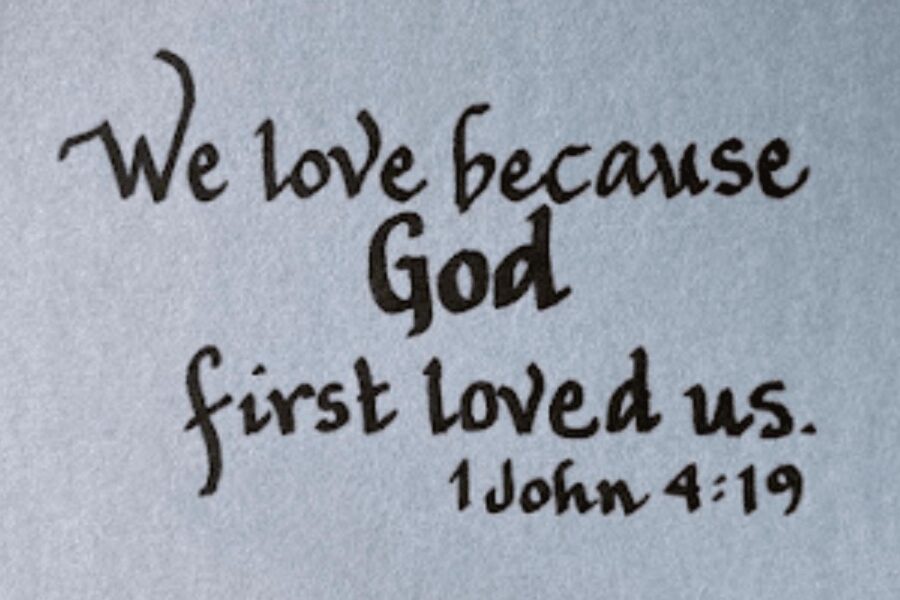 We love because
God
first loved us.
1 John 4:19